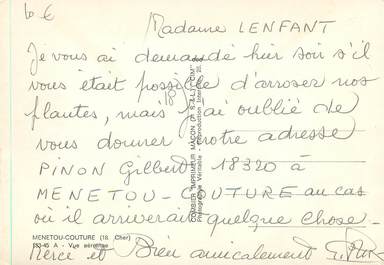 10 €
Madame LENFANT
Je vous ai demandé hier soir s'il
vous était possible d'arroser nos
plantes, mais j'ai oublié de
vous donner notre adresse
PINON Gilbert 18320 à
MENETOU-COUTURE au cas
où il arriverait quelque chose
MENETOU-COUTURE (18. Cher)
A - Vue aérienne
Merci et Bien amicalement
COMBIER IMPRIMEUR MACON (S.-&-L.) "CIM"
Photographie Véritable - Reproduction Interdite